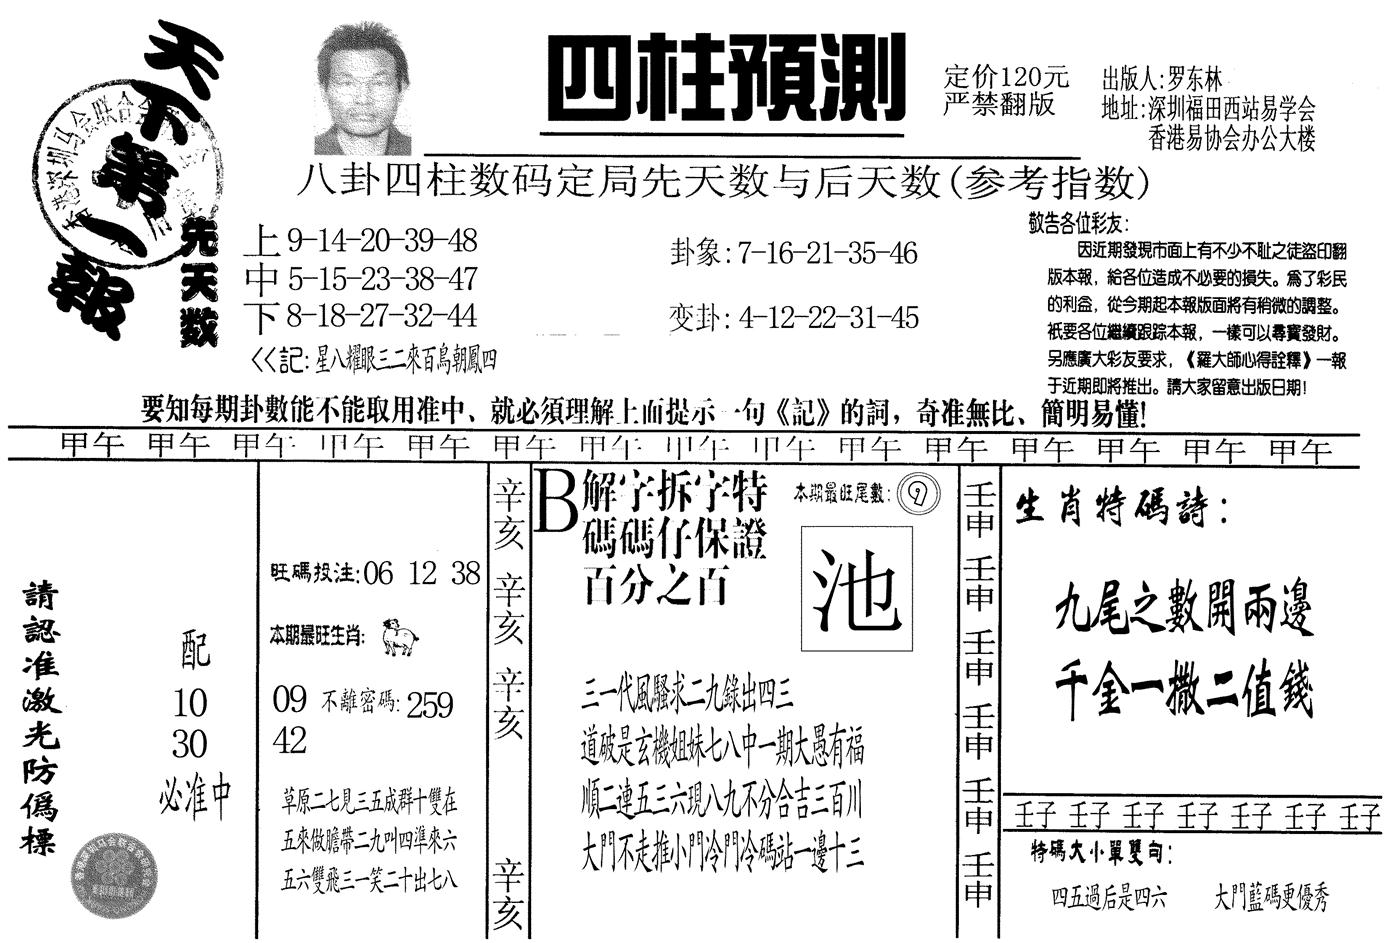 天下第一報
四柱預測
定价120元
严禁翻版
出版人:罗东林
地址:深圳福田西站易学会
香港易协会办公大楼
八卦四柱数码定局先天数与后天数(参考指数)
先天数
上 9-14-20-39-48
中 5-15-23-38-47
下 8-18-27-32-44
<<記: 星八耀眼三二來百鳥朝鳳四
卦象: 7-16-21-35-46
变卦: 4-12-22-31-45
敬告各位彩友:
因近期發現市面上有不少不耻之徒盜印翻
版本報，給各位造成不必要的損失。爲了彩民
的利益，從今期起本報版面將有稍微的調整。
衹要各位繼續跟踪本報，一樣可以尋寶發財。
另應廣大彩友要求，《羅大師心得詮釋》一報
于近期即將推出。請大家留意出版日期!
要知每期卦數能不能取用准中、就必須理解上面提示一句《記》的詞，奇准無比、簡明易懂!
甲午 甲午 甲午 甲午 甲午 甲午 甲午 甲午 甲午 甲午 甲午 甲午 甲午 甲午 甲午
請認准激光防僞標
配
10
30
必准中
旺碼投注:06 12 38
本期最旺生肖:
09 不離密碼: 259
42
草原二七見三五成群十雙在
五來做膽帶二九叫四準來六
五六雙飛三一笑二十出七八
辛亥 辛亥 辛亥 辛亥
B 解字拆字特
碼碼仔保證
百分之百
本期最旺尾數: 9
池
三一代風騷求二九錄出四三
道破是玄機姐妹七八中一期大愚有福
順二連五三六現八九不分合吉三百川
大門不走推小門冷門冷碼站一邊十三
壬申 壬申 壬申 壬申 壬申 壬申
生肖特碼詩:
九尾之數開兩邊
千金一撒二值錢
壬子 壬子 壬子 壬子 壬子 壬子 壬子
特碼大小單雙句:
四五過后是四六 大門藍碼更優秀